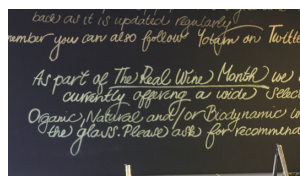 back as it is updated regularly
member you can also follow Yotam on Twitte
As part of The Real Wine Month we
currently offering a wide selec
Organic, Natural and/or Biodynamic
the glass. Please ask for recommenda